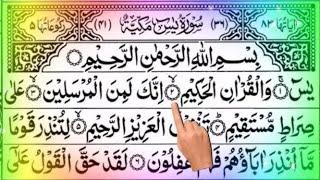 اٰيَاتُهَا ٨٣ (٣٦) سُوْرَةُ يٰسٓ مَكِّيَّةٌ (٤١) رُكُوْعَاتُهَا ٥
بِسْمِ اللّٰهِ الرَّحْمٰنِ الرَّحِيْمِ
يٰسٓ ۚ ۝۱ وَالْقُرْاٰنِ الْحَكِيْمِ ۝۲ اِنَّكَ لَمِنَ الْمُرْسَلِيْنَ ۝۳ عَلٰى
صِرَاطٍ مُّسْتَقِيْمٍ ۝۴ تَنْزِيْلَ الْعَزِيْزِ الرَّحِيْمِ ۝۵ لِتُنْذِرَ قَوْمًا
مَّاۤ اُنْذِرَ اٰبَآؤُهُمْ فَهُمْ غٰفِلُوْنَ ۝۶ لَقَدْ حَقَّ الْقَوْلُ عَلٰۤى